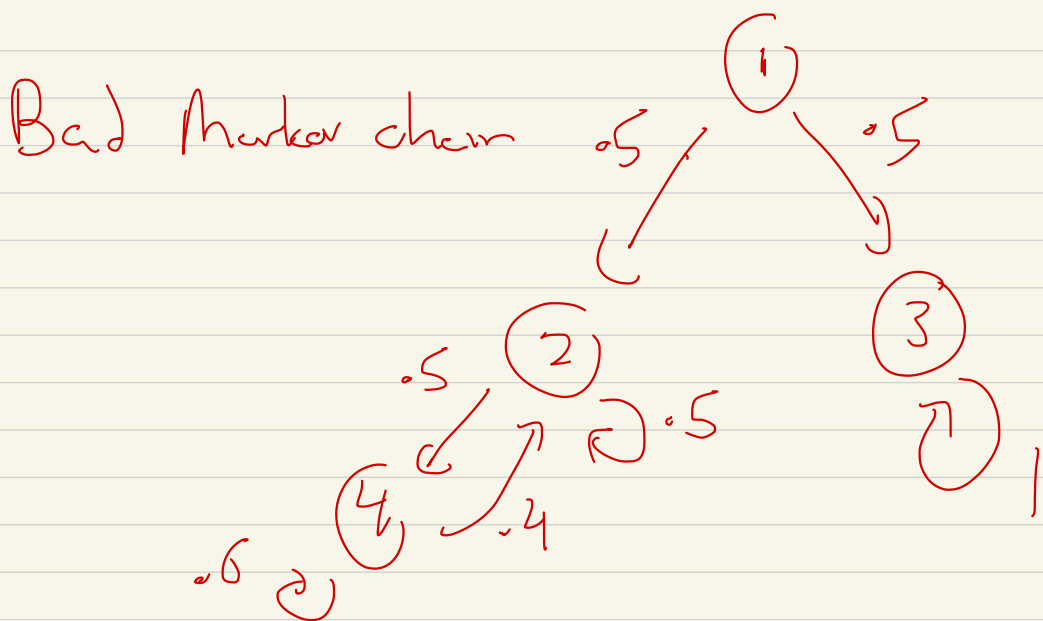 1
Bad Markov chain .5 .5
2 3
.5 .5
4 .4 1
.6